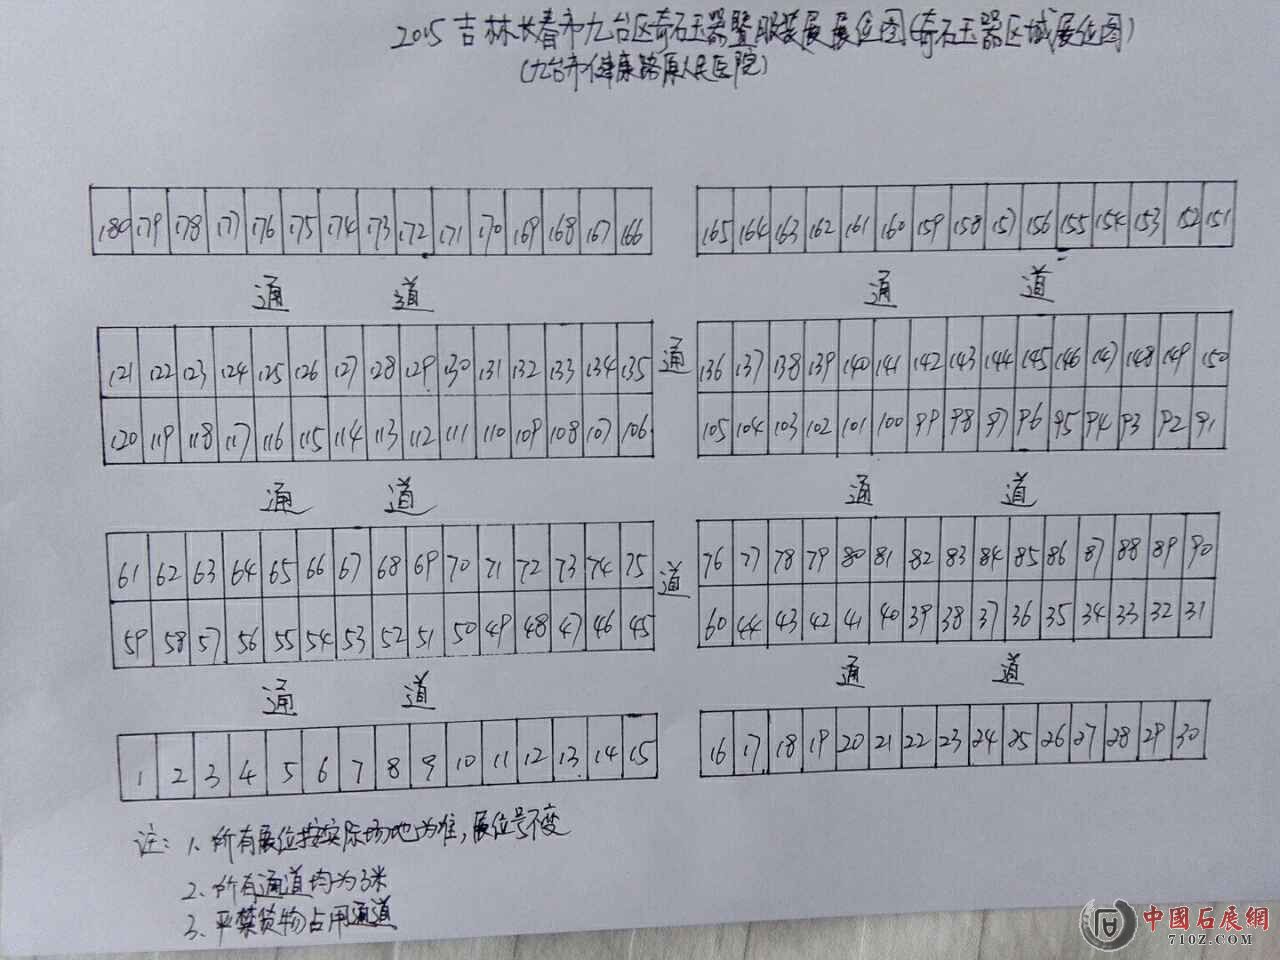 2015吉林长春市九台区奇石玉器暨服装展展位图(奇石玉器区域展位图)
(九台市健康路原人民医院)
180 179 178 177 176 175 174 173 172 171 170 169 168 167 166 165 164 163 162 161 160 159 158 157 156 155 154 153 152 151
通 道 通 道
121 122 123 124 125 126 127 128 129 130 131 132 133 134 135 通 136 137 138 139 140 141 142 143 144 145 146 147 148 149 150
120 119 118 117 116 115 114 113 112 111 110 109 108 107 106 105 104 103 102 101 100 99 98 97 96 95 94 93 92 91
通 道 通 道
61 62 63 64 65 66 67 68 69 70 71 72 73 74 75 道 76 77 78 79 80 81 82 83 84 85 86 87 88 89 90
59 58 57 56 55 54 53 52 51 50 49 48 47 46 45 60 44 43 42 41 40 39 38 37 36 35 34 33 32 31
通 道 通 道
1 2 3 4 5 6 7 8 9 10 11 12 13 14 15 16 17 18 19 20 21 22 23 24 25 26 27 28 29 30
注: 1、所有展位按实际场地为准,展位号不变
2、所有通道均为3米
3、严禁货物占用通道
中國石展網
710Z.COM